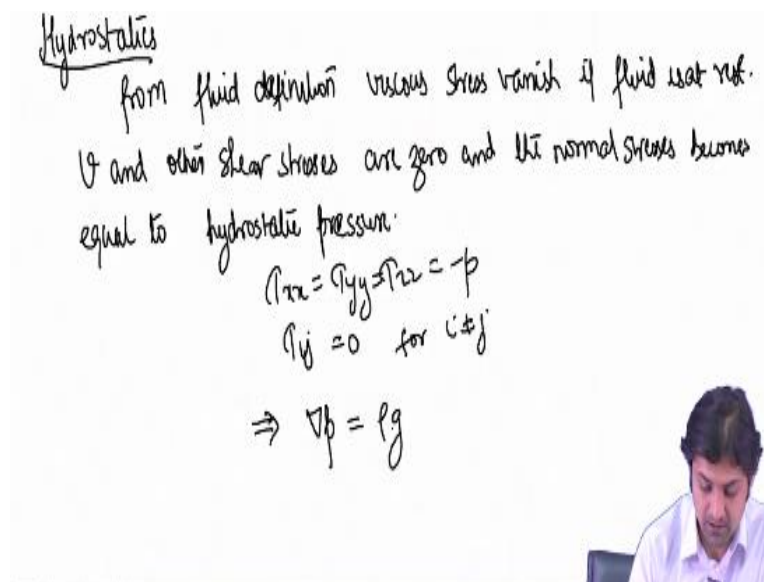 Hydrostatics
from fluid definition viscous stress vanish if fluid is at rest.
V and other shear stresses are zero and the normal stresses becomes
equal to hydrostatic pressure.
τxx = τyy = τzz = -p
τij = 0 for i ≠ j
⇒ ∇p = ρg